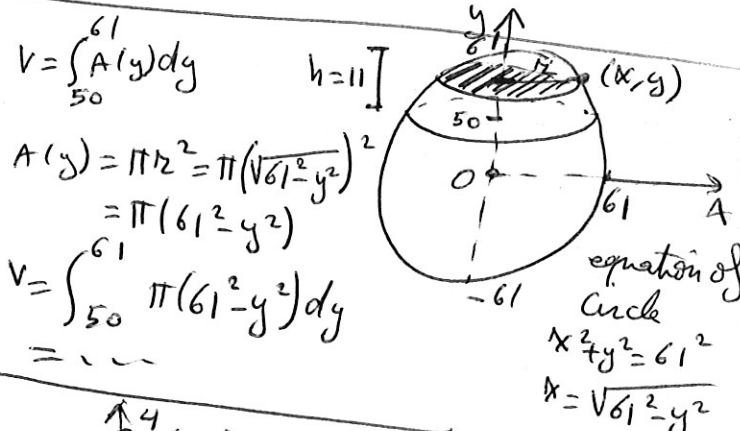 V = ∫₅₀⁶¹ A(y)dy
A(y) = πr² = π(√61²-y²)²
= π(61²-y²)
V = ∫₅₀⁶¹ π(61²-y²)dy
= ...
h=11]
y
61
r
(x,y)
50
0
61
-61
equation of
Circle
x²+y²=61²
x = √61²-y²
4